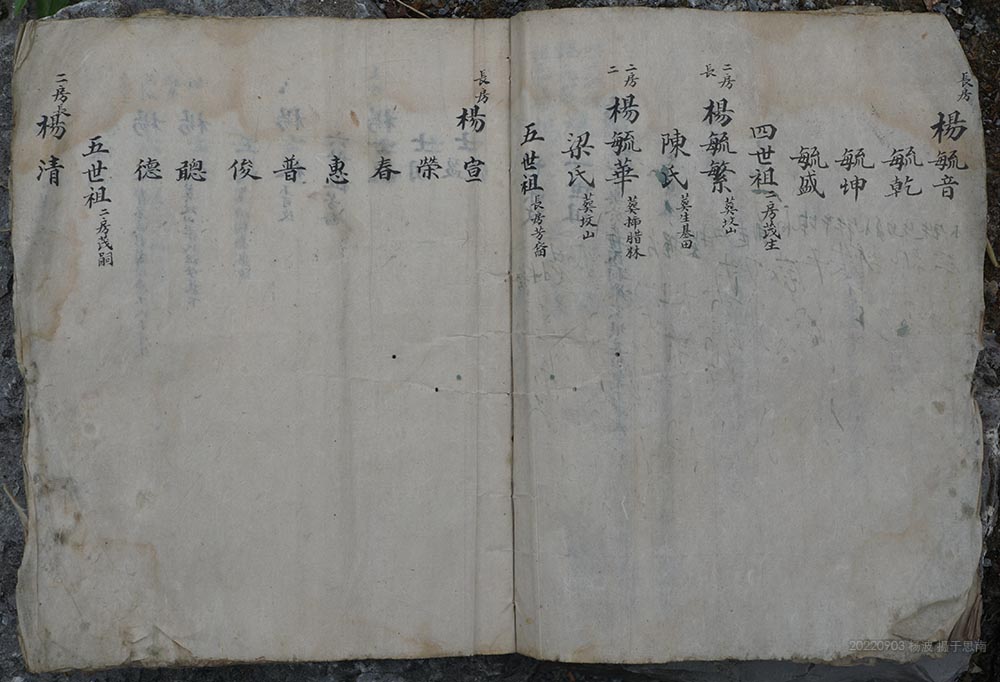 長房 楊毓音
毓乾
毓坤
毓盛
四世祖 二房茂生
二房長 楊毓繁 葬坟山
陳氏 葬生基田
二房二 楊毓華 葬掃腊林
梁氏 葬坟山
五世祖 長房芳裔
長房 楊宣
榮
春
惠
普
俊
聰
德
五世祖 二房茂嗣
二房長 楊清
20220903 杨波 摄于思南